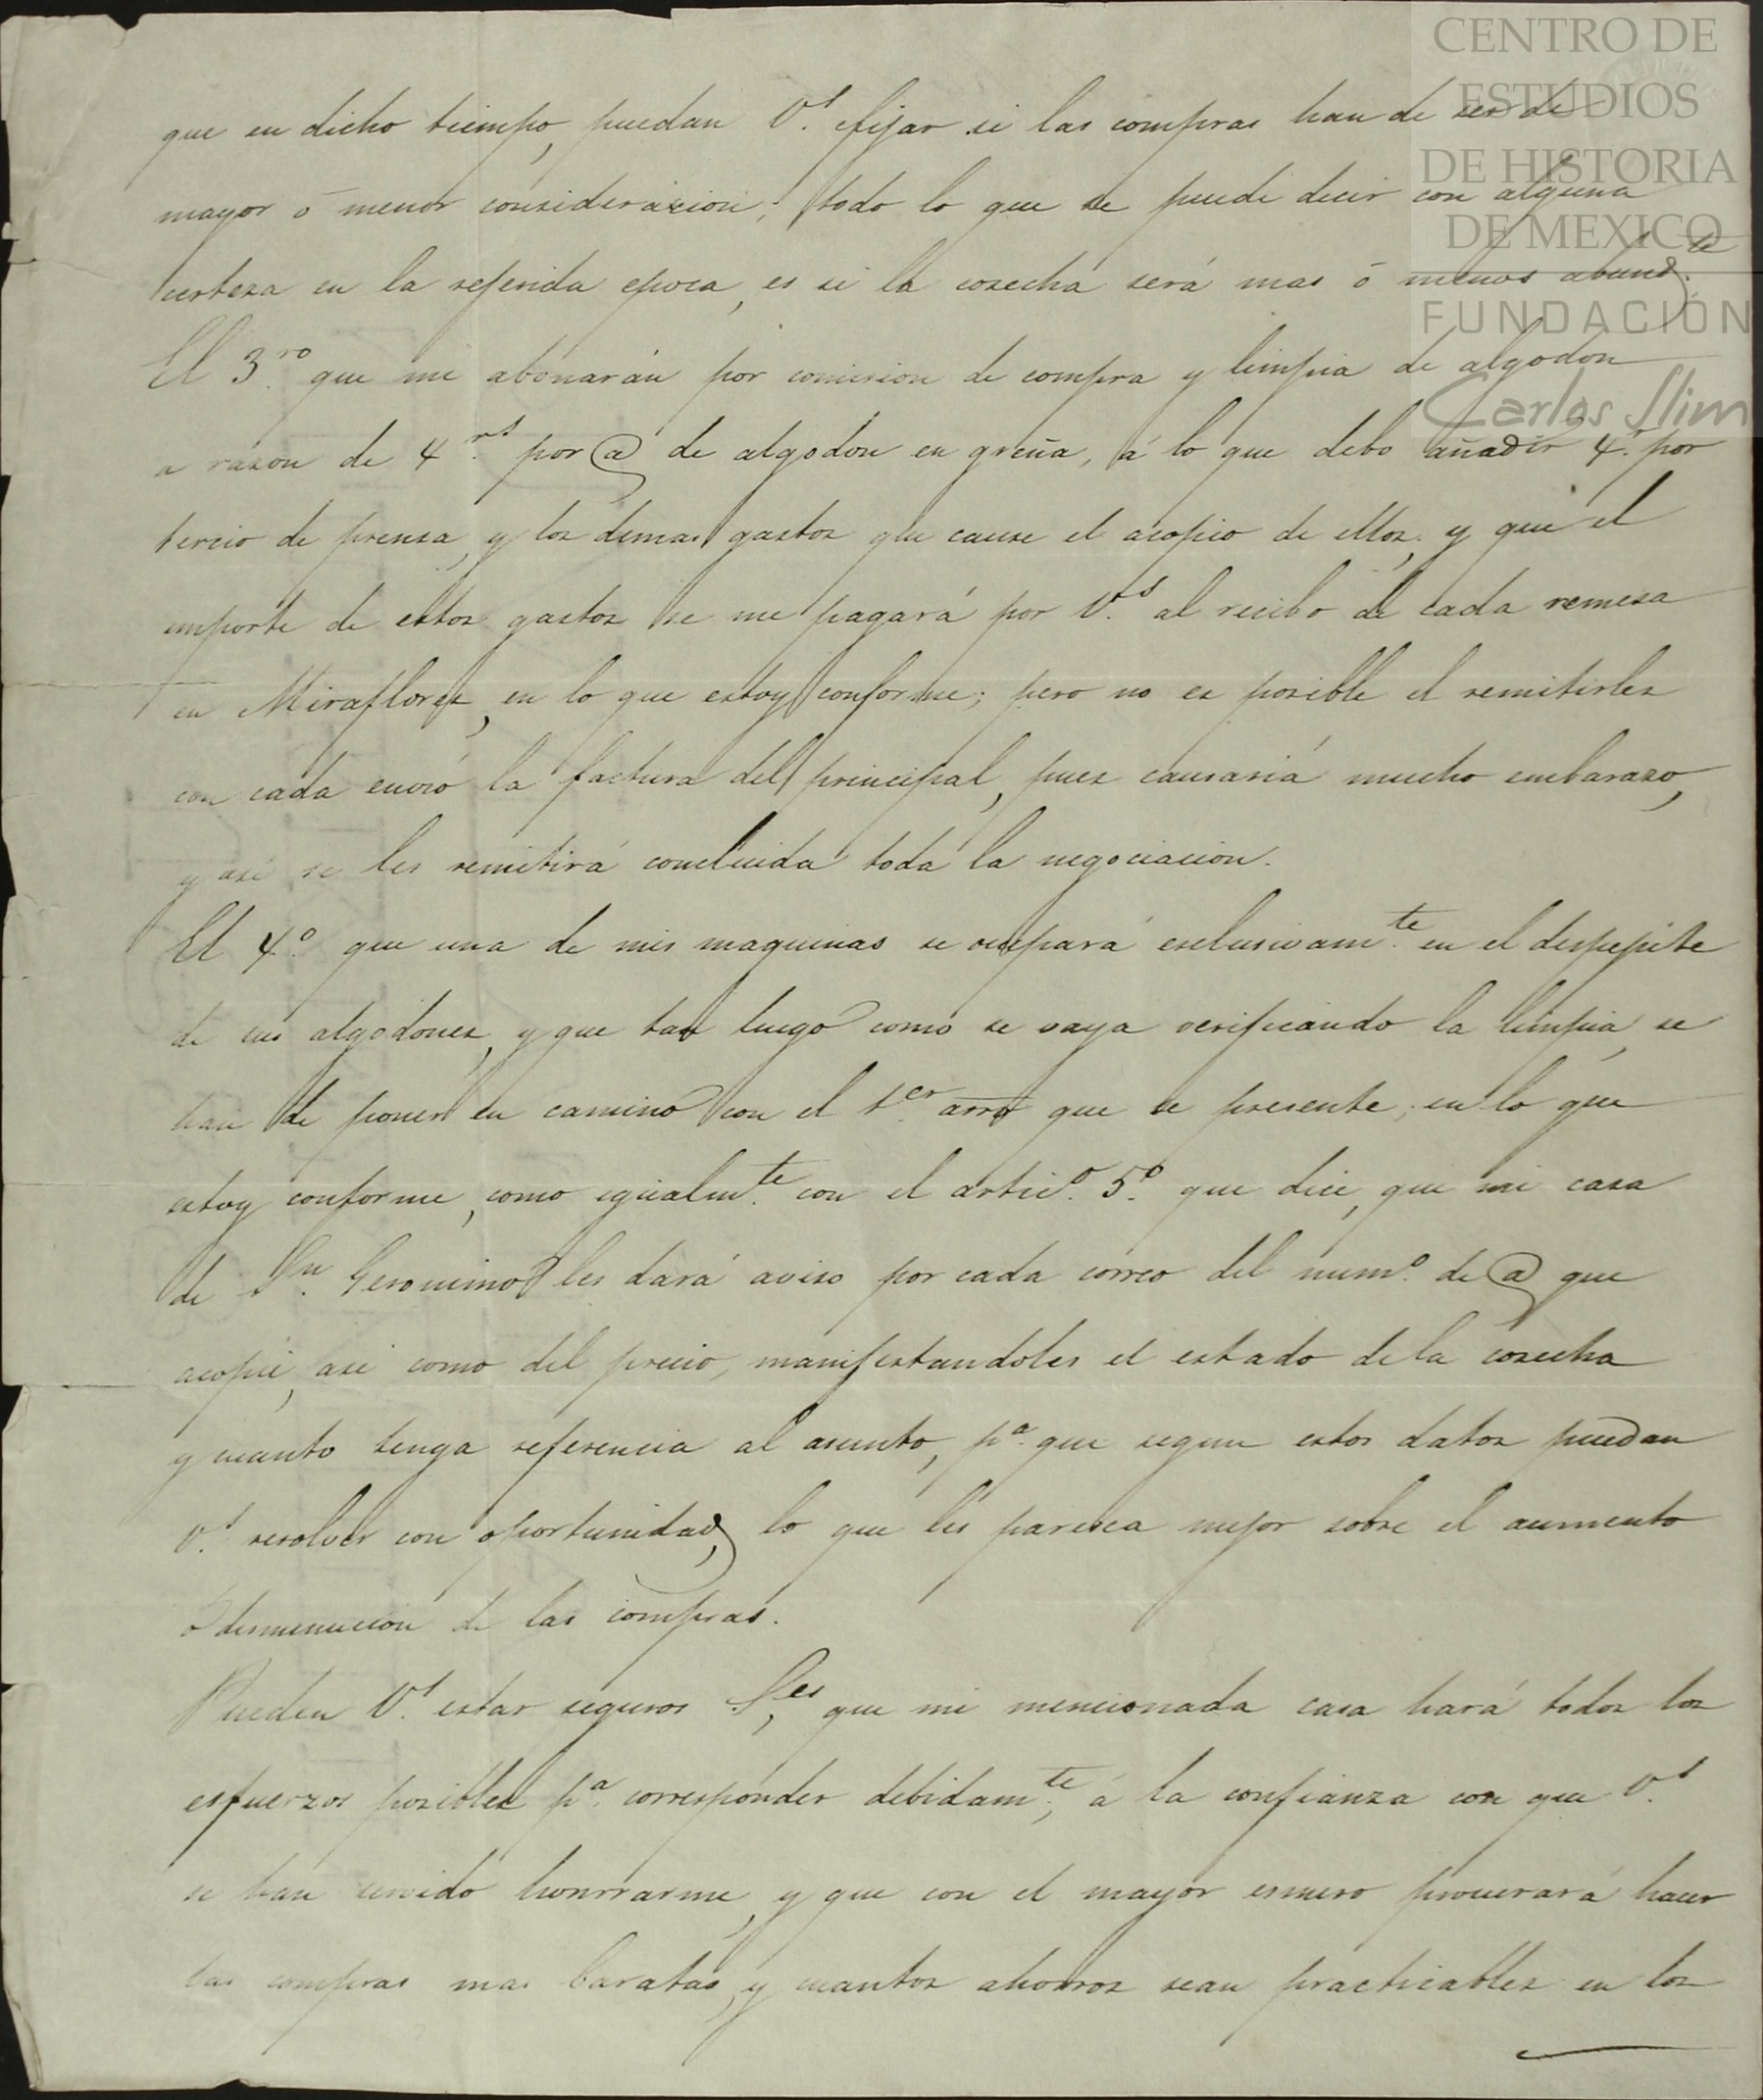 CENTRO DE
ESTUDIOS
DE HISTORIA
DE MEXICO
FUNDACIÓN
Carlos Slim
que en dicho tiempo, puedan V.s fijar si las compras han de ser de
mayor ó menor consideracion; todo lo que se puede decir con alguna
certeza en la referida epoca, es si la cosecha será mas ó menos abund.te
El 3.ro que me abonarán por comision de compra y limpia de algodon
a razon de 4 r.s por @ de algodon en greña, á lo que debo añadir 4 r. por
tercio de prensa, y los demas gastos que cause el acopio de ellos; y que el
importe de estos gastos se me pagará por V.s al recibo de cada remesa
en Miraflores, en lo que estoy conforme; pero no es posible el remitirles
con cada envio la factura del principal, pues causaria mucho embarazo,
y asi se les remitirá concluida toda la negociacion.
El 4.o que una de mis maquinas se ocupará esclusivam.te en el despepite
de sus algodones, y que tan luego como se vaya verificando la limpia, se
han de poner en camino con el 1.er arro que se presente; en lo que
estoy conforme, como igualm.te con el artic.o 5.o que dice, que mi casa
de S.n Geronimo les dará aviso por cada correo del num.o de @ que
acopie, asi como del precio, manifestandoles el estado de la cosecha
y cuanto tenga referencia al asunto, p.a que segun estos datos puedan
V.s resolver con oportunidad, lo que les paresca mejor sobre el aumento
ó disminucion de las compras.
Pueden V.s estar seguros S.es que mi mencionada casa hará todos los
esfuerzos posibles p.a corresponder debidam.te á la confianza con que V.s
se han servido honrrarme, y que con el mayor esmero procurará hacer
las compras mas baratas, y cuantos ahorros sean practicables en los